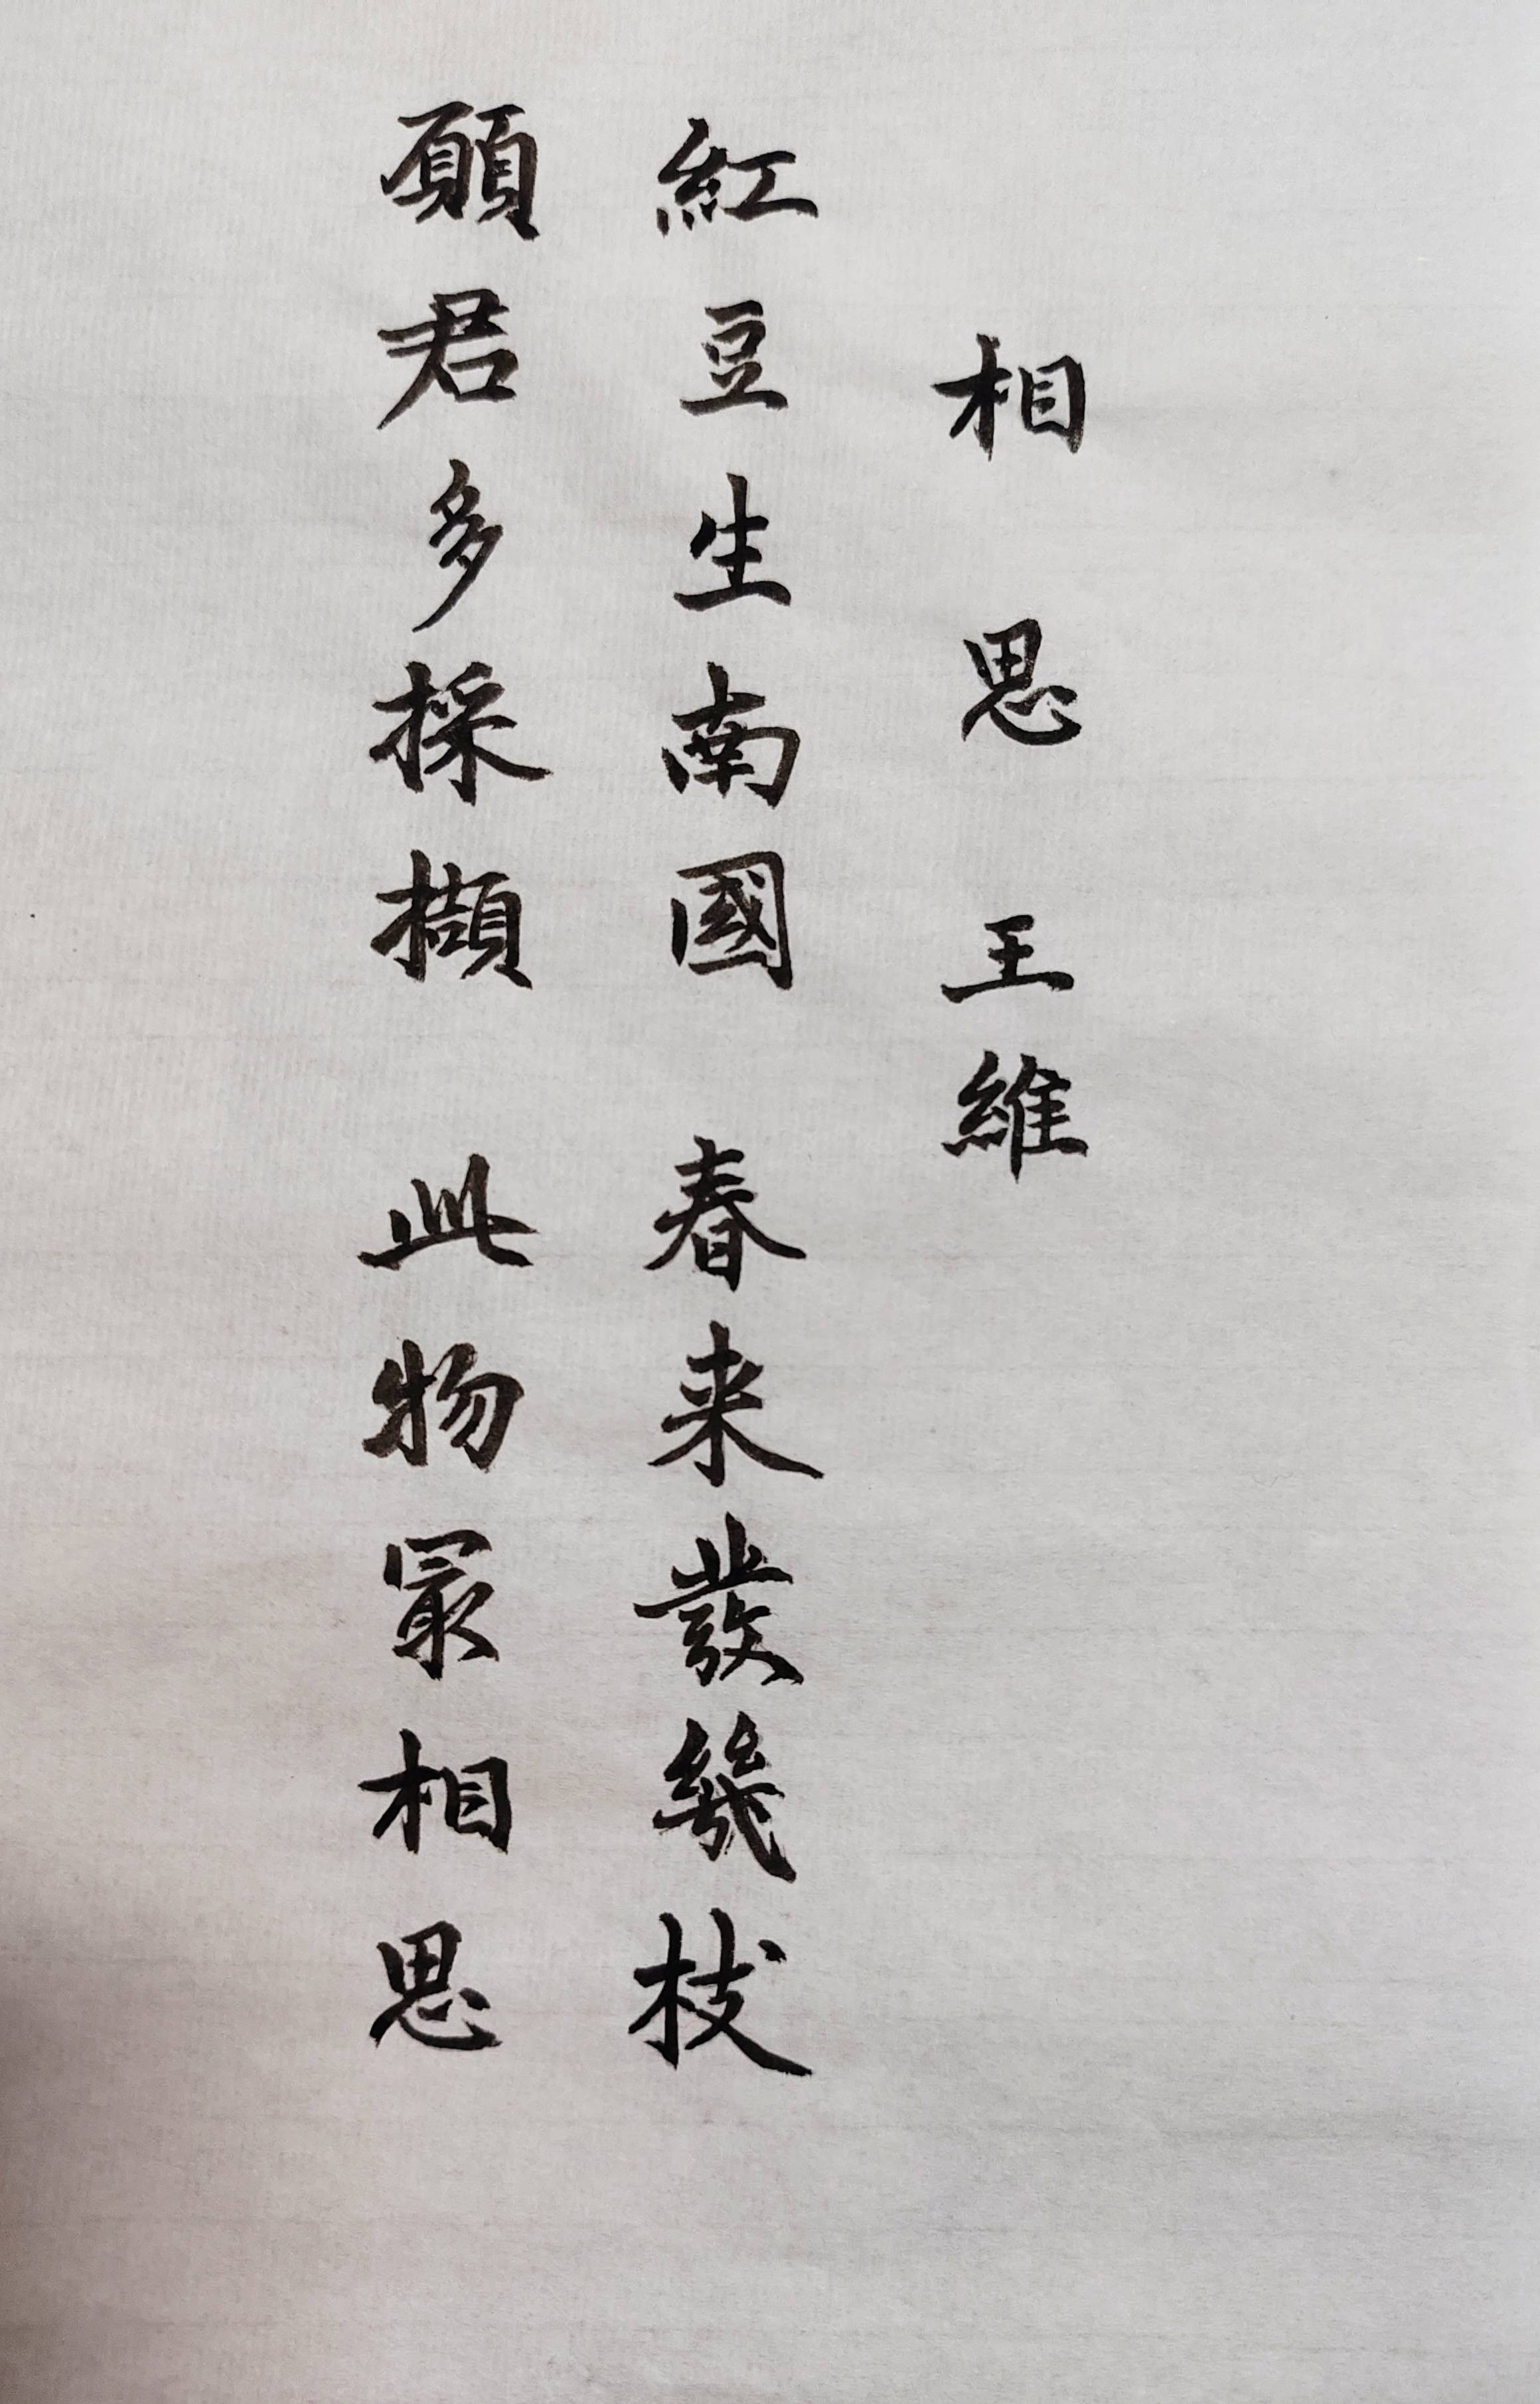 相思 王維
紅豆生南國 春来發幾枝
願君多採擷 此物冣相思